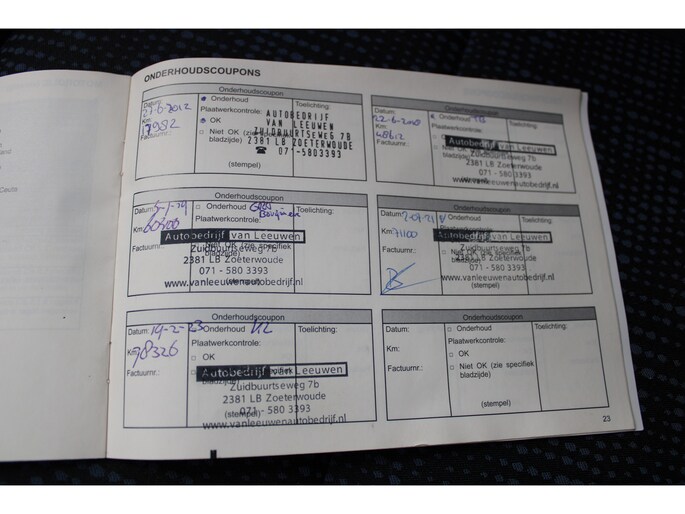 ONDERHOUDSCOUPONS
Onderhoudscoupon
Datum: 27-6-2012
Km: 17982
Factuurnr.:
Onderhoud
Plaatwerkcontrole:
OK
Niet OK (zie
bladzijde)
(stempel)
Toelichting:
AUTOBEDRIJF
VAN LEEUWEN
ZUIDBUURTSEWEG 7B
2381 LB ZOETERWOUDE
☎ 071-5803393
Onderhoudscoupon
Datum:
Km:
Factuurnr.:
Onderhoud
Plaatwerkcontrole:
OK
Toelichting:
Autobedrijf van Leeuwen
Zuidbuurtseweg 7b
2381 LB Zoeterwoude
071 - 580 3393
www.vanleeuwenautobedrijf.nl
Onderhoudscoupon
Datum:
Km: 60300
Factuurnr.:
Onderhoud
Plaatwerkcontrole:
Toelichting:
Autobedrijf van Leeuwen
Niet OK (zie specifiek
bladzijde)
Zuidbuurtseweg 7b
2381 LB Zoeterwoude
071 - 580 3393
www.vanleeuwenautobedrijf.nl
(stempel)
Onderhoudscoupon
Datum:
Km: 71100
Factuurnr.:
Onderhoud
Plaatwerkcontrole:
Toelichting:
Autobedrijf van Leeuwen
Niet OK (zie specifiek
Zuidbuurtseweg 7b
2381 LB Zoeterwoude
071 - 580 3393
www.vanleeuwenautobedrijf.nl
(stempel)
Onderhoudscoupon
Datum: 14-2-23
Km: 78326
Factuurnr.:
Onderhoud
Plaatwerkcontrole:
OK
Toelichting:
Autobedrijf van Leeuwen
bladzijde)
Zuidbuurtseweg 7b
2381 LB Zoeterwoude
071 - 580 3393
(stempel)
www.vanleeuwenautobedrijf.nl
Onderhoudscoupon
Datum:
Km:
Factuurnr.:
Onderhoud
Plaatwerkcontrole:
OK
Niet OK (zie specifiek
bladzijde)
(stempel)
Toelichting:
23